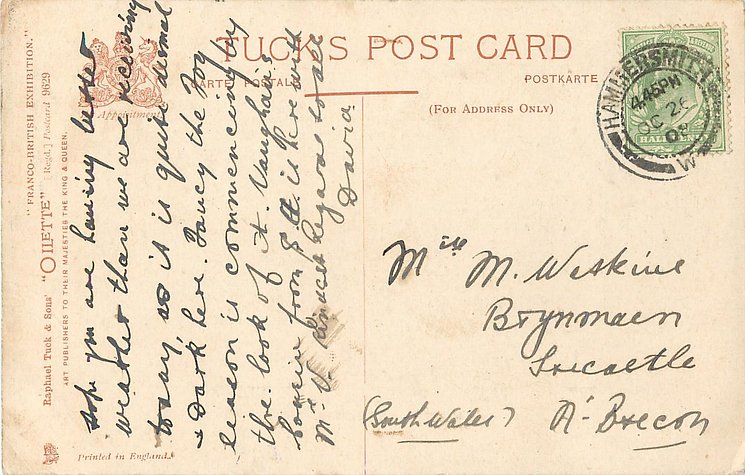 TUCK'S POST CARD
CARTE POSTALE
POSTKARTE
(FOR ADDRESS ONLY)
By Appointment
HAMMERSMITH
4.45PM
OC 26
W
HALFPENNY
"FRANCO-BRITISH EXHIBITION."
Raphael Tuck & Sons' "OILETTE" [Regd.] Postcard 9629
ART PUBLISHERS TO THEIR MAJESTIES THE KING & QUEEN.
Printed in England.
hope you are having better
weather than we are receiving
today as is is quite dismal
& dark here. Fancy the Fog
season is commencing by
the look of it. Vaughan's
cousin from is here with
Mrs V. kindest regards to all
David
M. 
Brynmaen
Trecastle
(South Wales) Nr Brecon